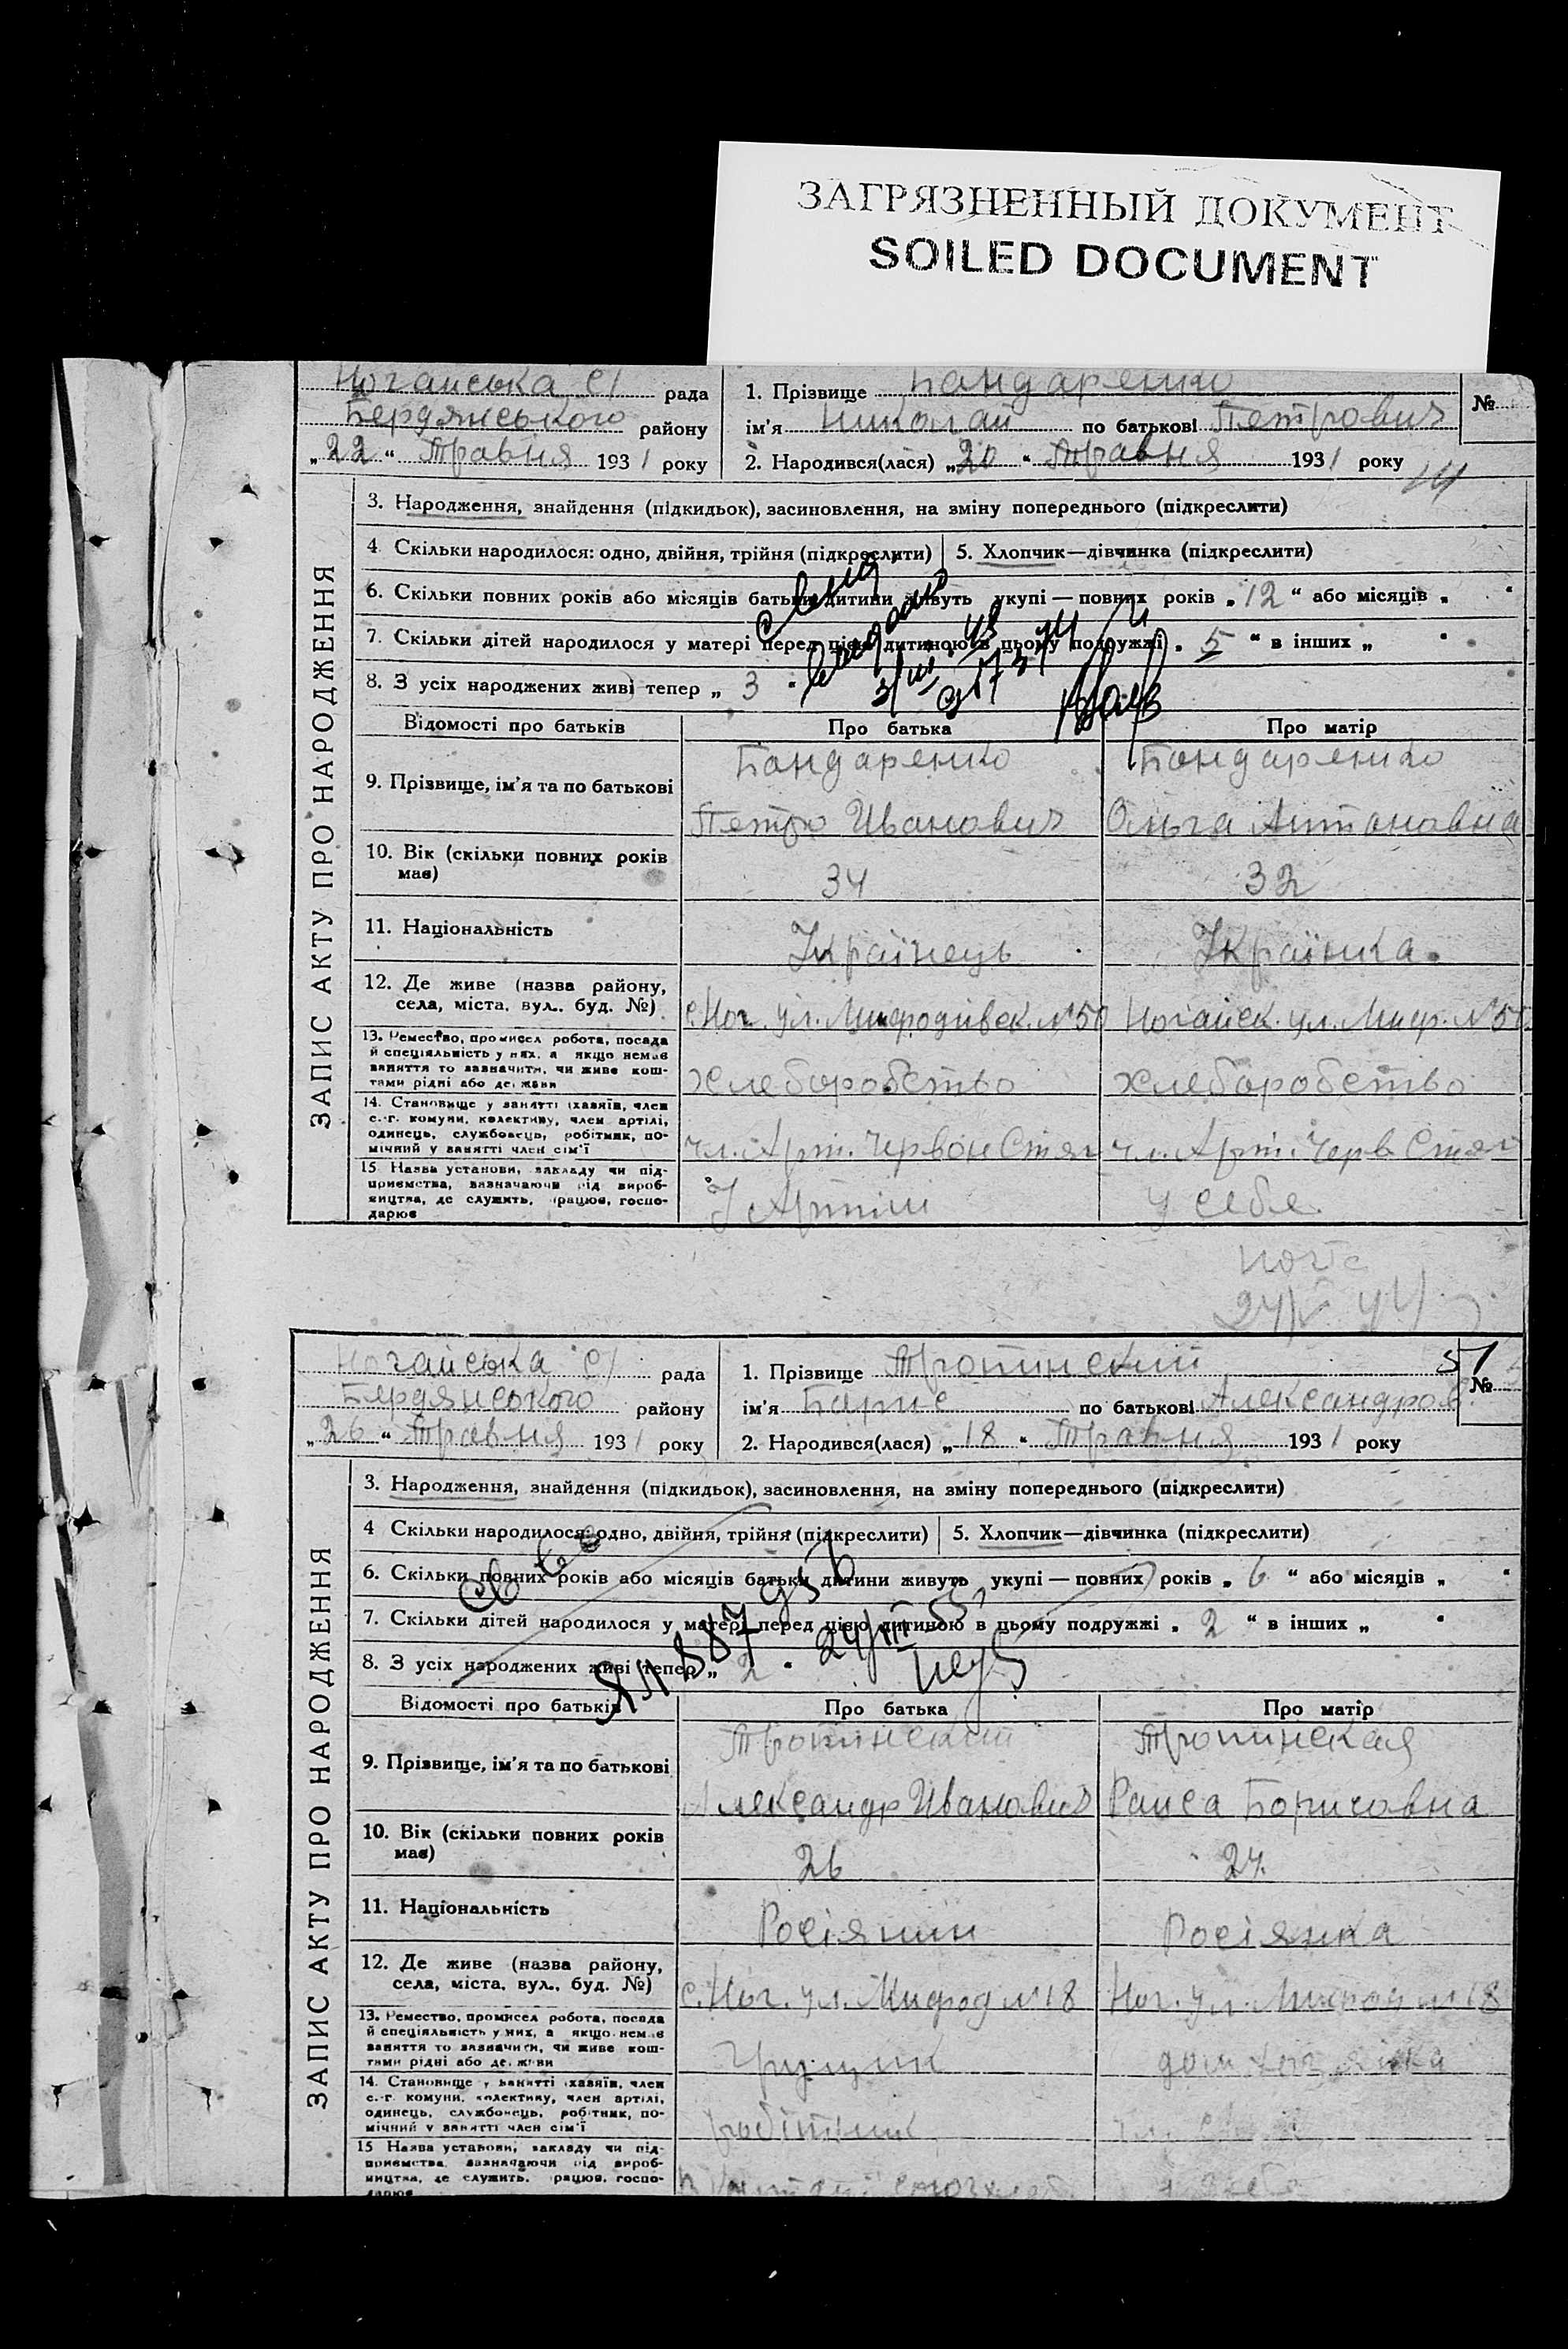 ЗАГРЯЗНЕННЫЙ ДОКУМЕНТ
SOILED DOCUMENT
Ногайська с/ рада
Бердянського району
„22“ Травня 1931 року
1. Прізвище Бандаренко
ім'я Николай по батькові Петрович
№
2. Народився(лася) „20“ Травня 1931 року
ЗАПИС АКТУ ПРО НАРОДЖЕННЯ
3. Народження, знайдення (підкидьок), засиновлення, на зміну попереднього (підкреслити)
4 Скільки народилося: одно, двійня, трійня (підкреслити) 5. Хлопчик—дівчинка (підкреслити)
6. Скільки повних років або місяців батьки дитини живуть укупі — повних років „12“ або місяців „ “
7. Скільки дітей народилося у матері перед цією дитиною в цьому подружжі „5“ в інших „ “
8. З усіх народжених живі тепер „3“
Відомості про батьків Про батька Про матір
9. Прізвище, ім'я та по батькові
Бандаренко Бандаренко
Петро Иванович Ольга Антановна
10. Вік (скільки повних років має)
34 32
11. Національність
Українець Українка
12. Де живе (назва району,
села, міста, вул., буд. №)
с. Ног. ул. Мифодіівск. №50 Ногайск. ул. Миф. №50
13. Ремество, промисел робота, посада
й спеціяльність у них, а якщо немає
заняття то зазначити, чи живе кош-
тами рідні або держави
хлеборобство хлеборобство
14. Становище у занятті (хазяїн, член
с.-г. комуни, колективу, член артілі,
одинець, службовець, робітник, по-
мічний у занятті член сім'ї
чл. Арт. Червон Стяг чл. Арт. Черв. Стяг
15. Назва установи, закладу чи під-
приємства, зазначаючи рід вироб-
ництва, де служить, працює, госпо-
дарює
У Артіли у себе
Ногайська с/ рада
Бердянського району
„26“ Травня 1931 року
1. Прізвище Тропинский
57
№
ім'я Барис по батькові Александров.
2. Народився(лася) „18“ Травня 1931 року
ЗАПИС АКТУ ПРО НАРОДЖЕННЯ
3. Народження, знайдення (підкидьок), засиновлення, на зміну попереднього (підкреслити)
4 Скільки народилося: одно, двійня, трійня (підкреслити) 5. Хлопчик—дівчинка (підкреслити)
6. Скільки повних років або місяців батьки дитини живуть укупі — повних років „6“ або місяців „ “
7. Скільки дітей народилося у матері перед цією дитиною в цьому подружжі „2“ в інших „ “
8. З усіх народжених живі тепер „2“
Відомості про батьків Про батька Про матір
9. Прізвище, ім'я та по батькові
Тропинский Тропинская
Александр Иванович Раиса Борисовна
10. Вік (скільки повних років має)
26 24
11. Національність
Росіянин Росіянка
12. Де живе (назва району,
села, міста, вул., буд. №)
с. Ног. ул. Мифод №18 Ног. ул. Мифод №18
13. Ремество, промисел робота, посада
й спеціяльність у них, а якщо немає
заняття то зазначити, чи живе кош-
тами рідні або держави
Грущик дом хазяйка
14. Становище у занятті (хазяїн, член
с.-г. комуни, колективу, член артілі,
одинець, службовець, робітник, по-
мічний у занятті член сім'ї
робітник
15 Назва установи, закладу чи під-
приємства, зазначаючи рід вироб-
ництва, де служить, працює, госпо-
дарює